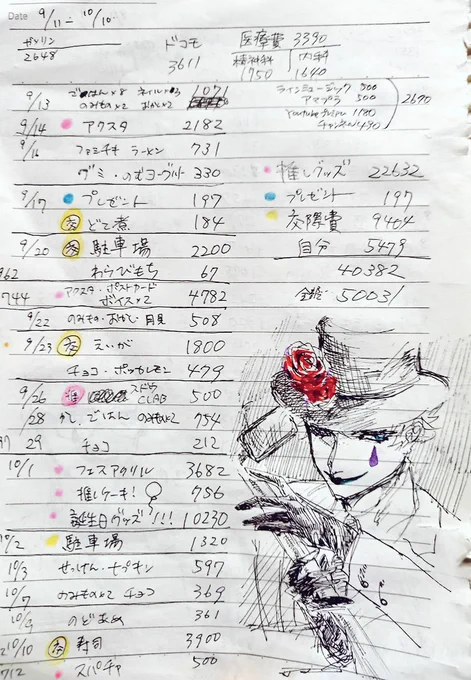 Date 9/11 - 10/10
ガソリン
2648
ドコモ
3611
医療費 3390
精神科 内科
1750 1640
ラインミュージック 500
アマプラ 500
Youtubeプレミアム 1180
チャンネル 490
2670
9/13 ごはん×8 ネイル×3 1071
のみもの×2 おかし×2
9/14 アクスタ 2182
9/16 ファミチキ ラーメン 731
グミ・のむヨーグルト 330
9/17 プレゼント 197
交 どて煮 184
9/20 交 駐車場 2200
わらびもち 67
アクスタ・ポストカード 4782
ボイス×2
9/22 のみもの・おかし・月見 508
9/23 交 えいが 1800
チョコ・ポッカレモン 479
9/26 推 CLAB 500
/28 ごはん のみもの×2 754
29 チョコ 212
10/1 フェスアクリル 3682
推しケーキ! 756
誕生日グッズ!!! 10230
10/2 駐車場 1320
10/3 せっけん・ナプキン 597
10/7 のみもの×2 チョコ 369
10/9 のどあめ 361
10/10 交 寿司 3900
スパチャ 500
962
744
推しグッズ 22632
プレゼント 197
交際費 9404
自分 5479
40382
全給 50031